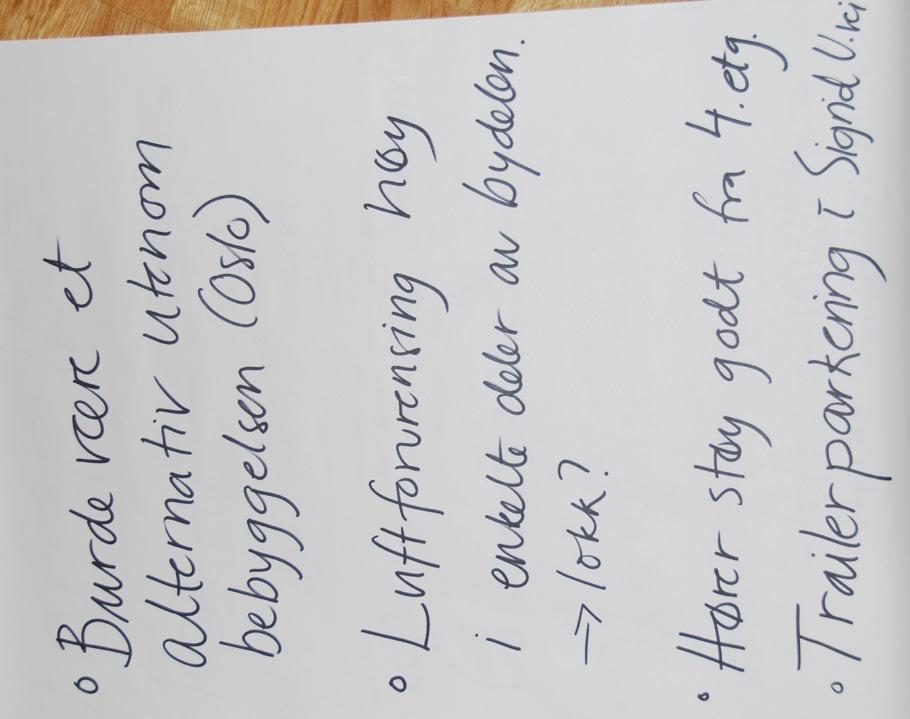 ◦ Burde være et
alternativ utenom
bebyggelsen (Oslo)
◦ Luftforurensing høy
i enkelte deler av bydelen.
⇒ lokk?
◦ Hører støy godt fra 4.etg.
◦ Trailerparkering i Sigrid U.vei